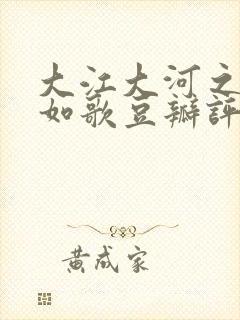 大江大河之
如歌豆瓣評
黄成家